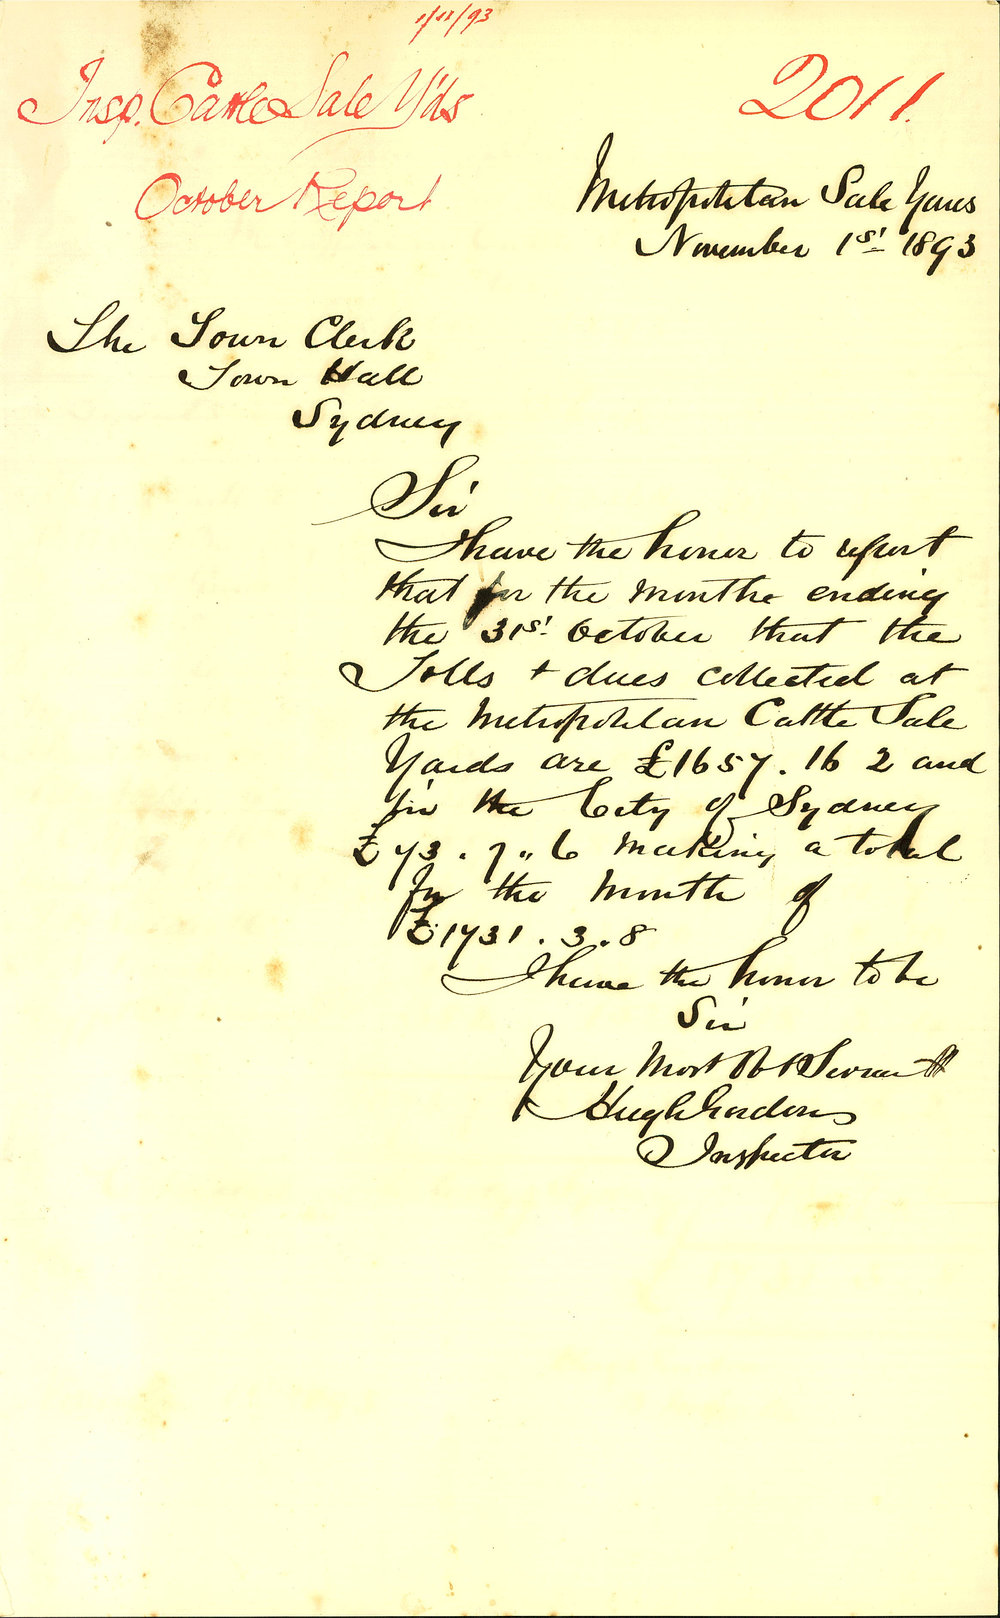 1/11/93
Insp. Cattle Sale Y'ds
2011.
October Report
Metropolitan Sale Yards
November 1st 1893
The Town Clerk
Town Hall
Sydney
Sir
I have the honor to report
that for the months ending
the 31st October that the
Tolls + dues collected at
the Metropolitan Cattle Sale
Yards are £1657. 16 2 and
for the City of Sydney
£73 . 7 .. 6 making a total
for the month of
£1731 . 3 . 8
I have the honor to be
Sir
Your Most Obt Servant
Hugh Gordon
Inspector